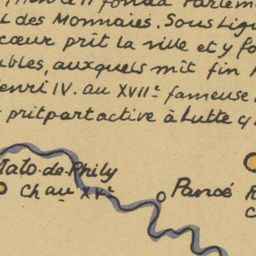 fonda Parlem
des Monnaies. Sous Ligu
cœur prit la ville et y fo
bles, auxquels mit fin
enri IV. au XVIIe fameuse
prit part active à Lutte
Malo-de-Phily
Chau XVe
Pancé